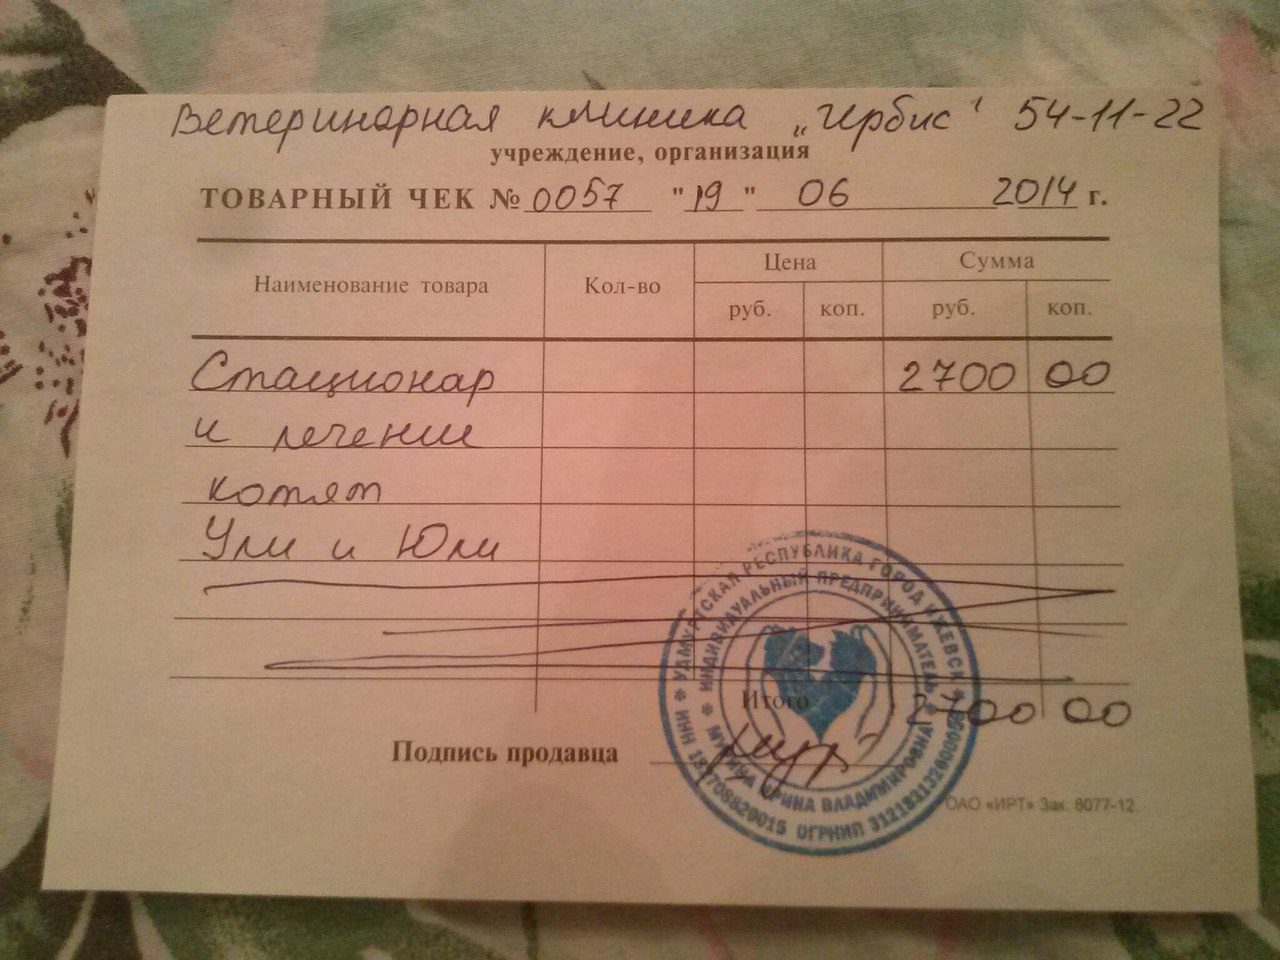 Ветеринарная клиника „Ирбис" 54-11-22
учреждение, организация
ТОВАРНЫЙ ЧЕК № 0057 "19" 06 2014 г.
Наименование товара Кол-во Цена Сумма
руб. коп. руб. коп.
Стационар 2700 00
и лечение
котят
Ули и Юли
Итого 2700 00
Подпись продавца
ОАО «ИРТ» Зак. 8077-12
УДМУРТСКАЯ РЕСПУБЛИКА ГОРОД ИЖЕВСК
ИНДИВИДУАЛЬНЫЙ ПРЕДПРИНИМАТЕЛЬ
ИРИНА ВЛАДИМИРОВНА
ИНН
ОГРНИП